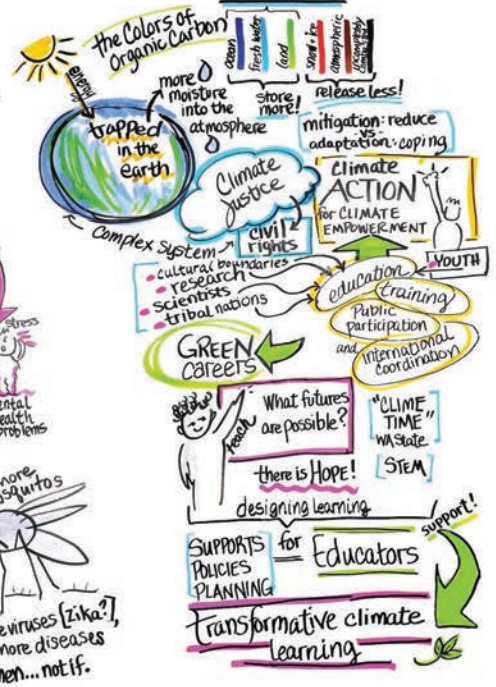 the Colors of
Organic Carbon
ocean
fresh water
land
snow + ice
atmospheric
store
more!
release less!
energy
trapped
in the
earth
more
moisture
into the
atmosphere
mitigation: reduce
-vs-
adaptation: coping
Climate
Justice
civil
rights
Climate
ACTION
for CLIMATE
EMPOWERMENT
YOUTH
Complex System
cultural boundaries
research
scientists
tribal nations
education
training
Public
participation
and
international
coordination
GREEN
careers
stress
ental
ealth
problems
reach
What futures
are possible?
"CLIME
TIME"
WA State
STEM
there is HOPE!
designing learning
SUPPORTS
POLICIES
PLANNING
for
Educators
support!
transformative climate
learning
more
squitos
e viruses [Zika?],
more diseases
hen... not if.